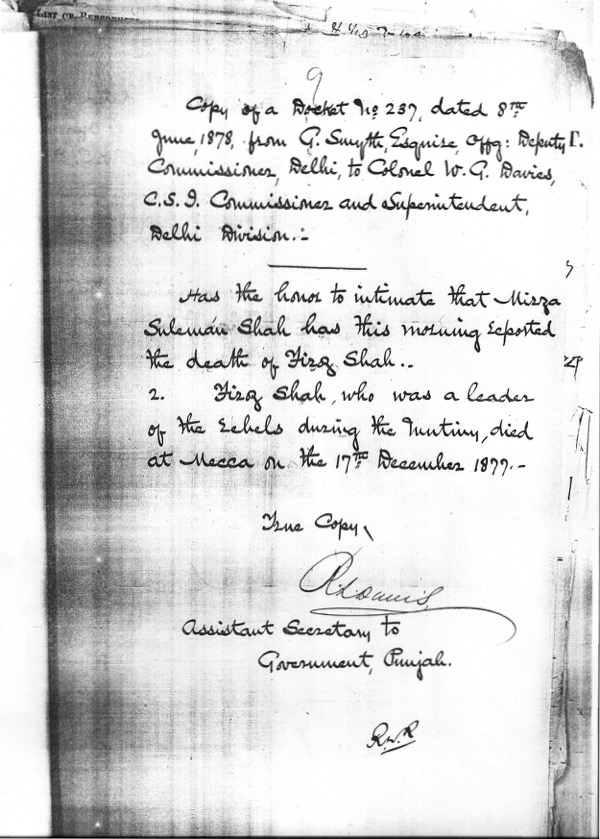 LIST OF REFERENCES
9
Copy of a Docket No 237, dated 8th
June, 1878, from G. Smyth, Esquire, Offg: Deputy
Commissioner, Delhi, to Colonel W. G. Davies,
C.S.I. Commissioner and Superintendent,
Delhi Division.:-
Has the honor to intimate that Mirza
Suleman Shah has this morning reported
the death of Firoz Shah..
2. Firoz Shah, who was a leader
of the rebels during the Mutiny, died
at Mecca on the 17th December 1877.-
True Copy,
Assistant Secretary to
Government, Punjab.
R.W.R